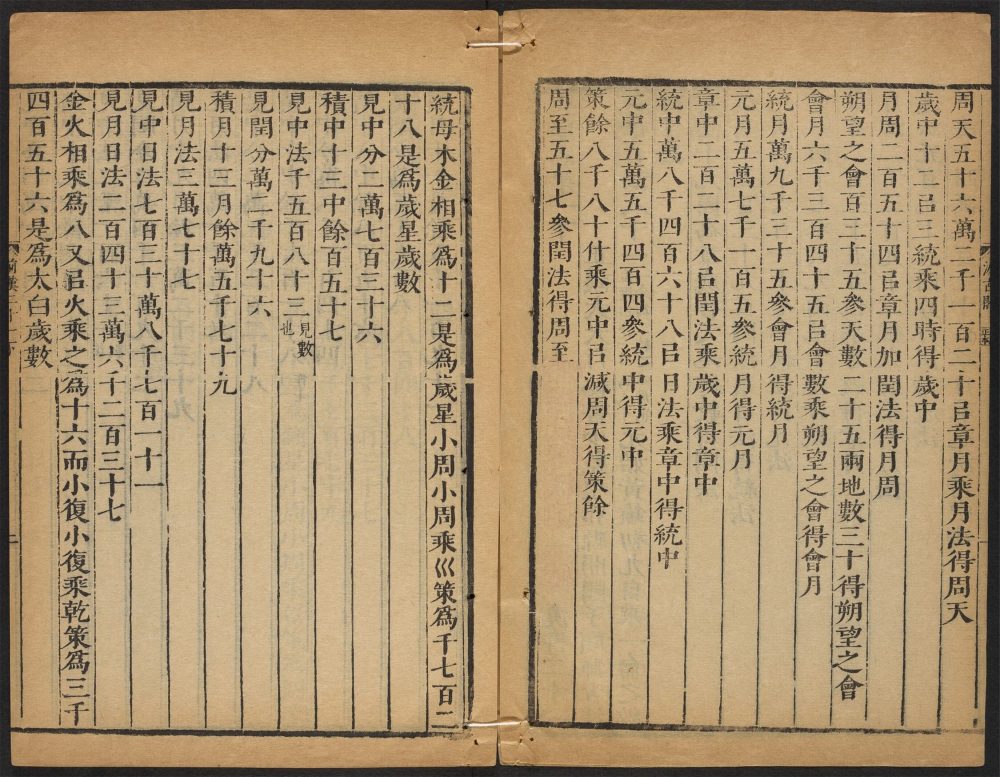 周天五十六萬二千一百二十㠯章月乘月法得周天
歲中十二㠯三統乘四時得歲中
月周二百五十四㠯章月加閏法得月周
朔望之會百三十五參天數二十五兩地數三十得朔望之會
會月六千三百四十五㠯會數乘朔望之會得會月
統月萬九千三十五參會月得統月
元月五萬七千一百五參統月得元月
章中二百二十八㠯閏法乘歲中得章中
統中萬八千四百六十八㠯日法乘章中得統中
元中五萬五千四百四參統中得元中
策餘八千八十什乘元中㠯減周天得策餘
周至五十七參閏法得周至
統母木金相乘爲十二是爲歲星小周小周乘巛策爲千七百二
十八是爲歲星歲數
見中分二萬七百三十六
積中十三中餘百五十七
見中法千五百八十三見數也
見閏分萬二千九十六
積月十三月餘萬五千七十九
見月法三萬七十七
見中日法七百三十萬八千七百一十一
見月日法二百四十三萬六千二百三十七
金火相乘爲八又㠯火乘之爲十六而小復小復乘乾策爲三千
四百五十六是爲太白歲數